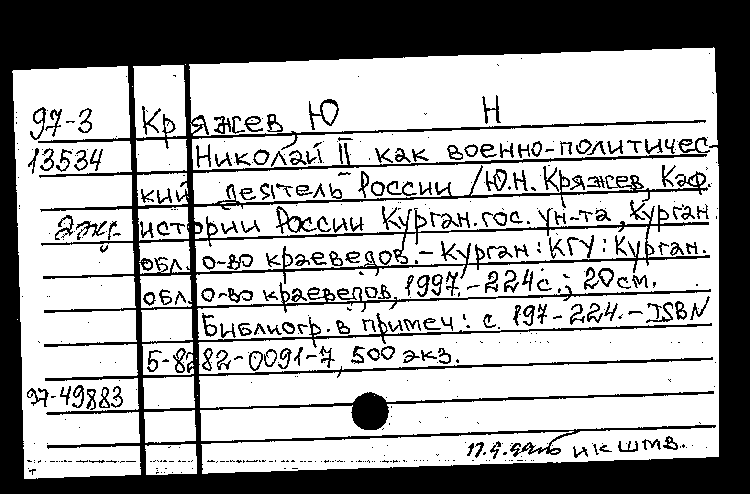 97-3 Кряжев, Ю Н
13534 Николай II как военно-политичес-
кий деятель России / Ю.Н. Кряжев, Каф.
2экз. истории России Курган. гос. ун-та, Курган.
обл. о-во краеведов. - Курган : КГУ : Курган.
обл. о-во краеведов, 1997. - 224 с.; 20 см.
Библиогр. в примеч.: с. 197-224. - ISBN
5-8282-0091-7, 500 экз.
97-49883
нк шмв.